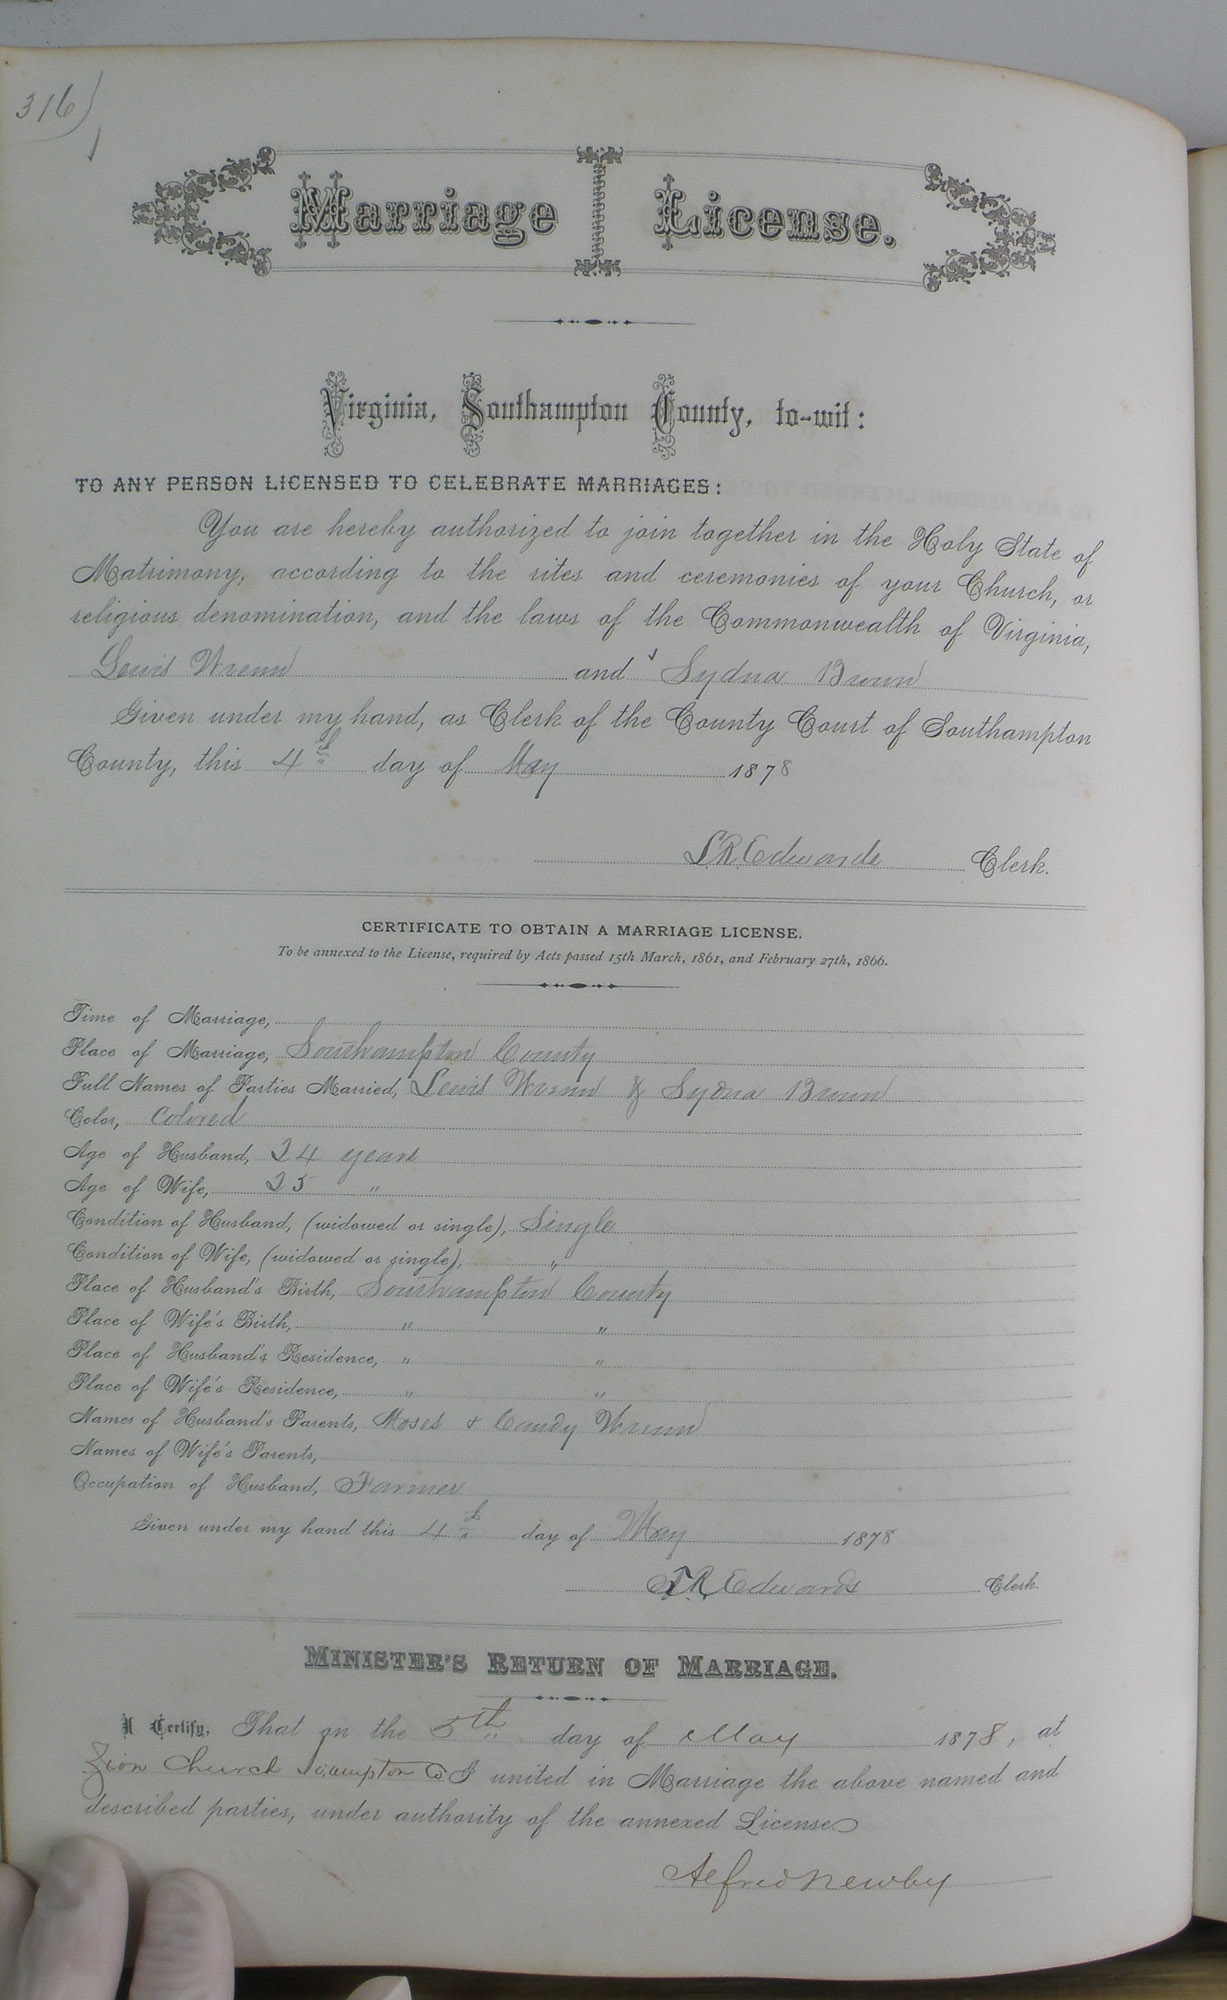 316)
Marriage License.
Virginia, Southampton County, to-wit:
TO ANY PERSON LICENSED TO CELEBRATE MARRIAGES:
You are hereby authorized to join together in the Holy State of
Matrimony, according to the rites and ceremonies of your Church, or
religious denomination, and the laws of the Commonwealth of Virginia,
Lewis Wrenn and Sydna Brown
Given under my hand, as Clerk of the County Court of Southampton
County, this 4th day of May 1878
L.R. Edwards Clerk.
CERTIFICATE TO OBTAIN A MARRIAGE LICENSE.
To be annexed to the License, required by Acts passed 15th March, 1861, and February 27th, 1866.
Time of Marriage,
Place of Marriage, Southampton County
Full Names of Parties Married, Lewis Wrenn & Sydna Brown
Color, Colored
Age of Husband, 24 years
Age of Wife, 25 "
Condition of Husband, (widowed or single), Single
Condition of Wife, (widowed or single), "
Place of Husband's Birth, Southampton County
Place of Wife's Birth, " "
Place of Husband's Residence, " "
Place of Wife's Residence, " "
Names of Husband's Parents, Moses & Candy Wrenn
Names of Wife's Parents,
Occupation of Husband, Farmer
Given under my hand this 4th day of May 1878
L.R. Edwards Clerk.
MINISTER'S RETURN OF MARRIAGE.
I Certify, That on the 5th day of May 1878, at
Zion Church Co I united in Marriage the above named and
described parties, under authority of the annexed License
Alfred Newby